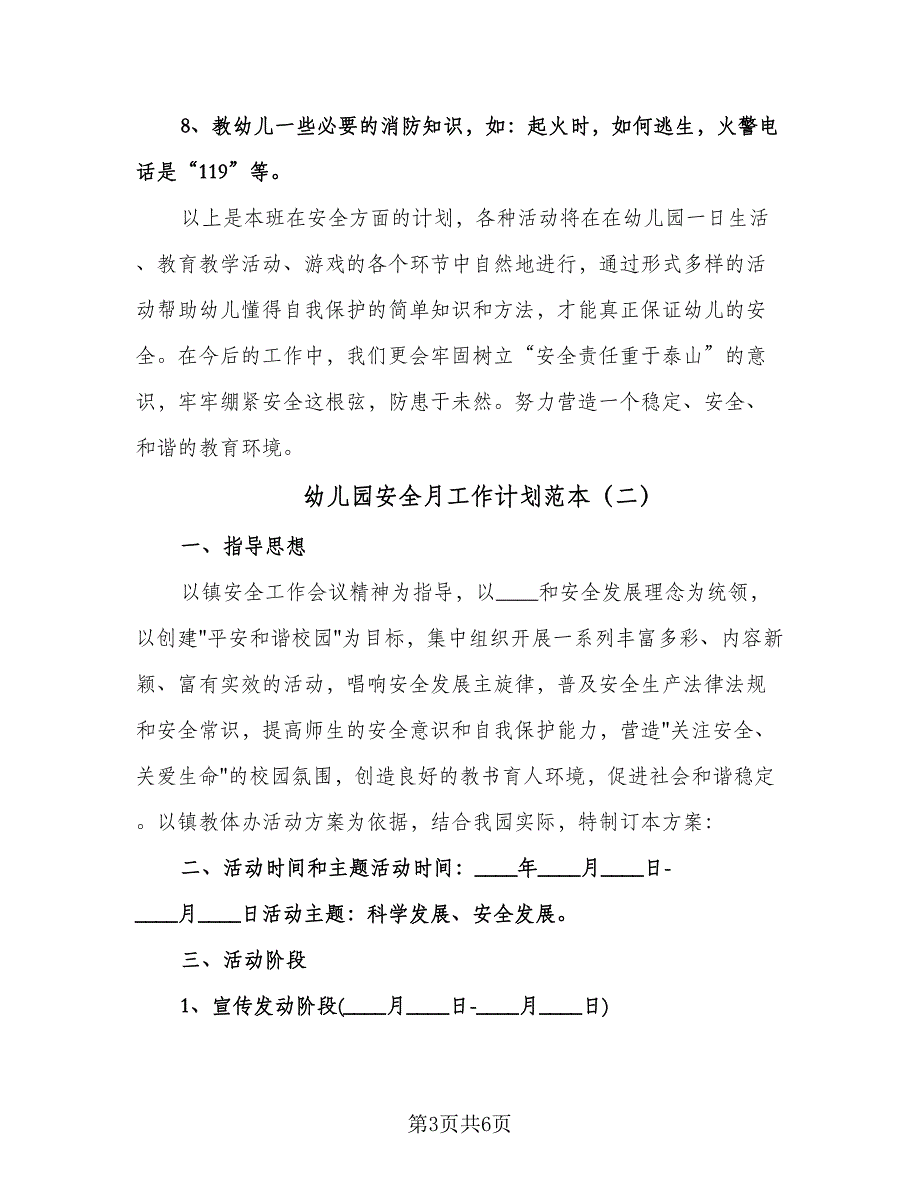 8、教幼儿一些必要的消防知识，如：起火时，如何逃生，火警电
话是“119”等。
以上是本班在安全方面的计划，各种活动将在在幼儿园一日生活
、教育教学活动、游戏的各个环节中自然地进行，通过形式多样的活
动帮助幼儿懂得自我保护的简单知识和方法，才能真正保证幼儿的安
全。在今后的工作中，我们更会牢固树立“安全责任重于泰山”的意
识，牢牢绷紧安全这根弦，防患于未然。努力营造一个稳定、安全、
和谐的教育环境。
幼儿园安全月工作计划范本（二）
一、指导思想
以镇安全工作会议精神为指导，以____和安全发展理念为统领，
以创建"平安和谐校园"为目标，集中组织开展一系列丰富多彩、内容新
颖、富有实效的活动，唱响安全发展主旋律，普及安全生产法律法规
和安全常识，提高师生的安全意识和自我保护能力，营造"关注安全、
关爱生命"的校园氛围，创造良好的教书育人环境，促进社会和谐稳定
。以镇教体办活动方案为依据，结合我园实际，特制订本方案：
二、活动时间和主题活动时间：____年____月____日-
____月____日活动主题：科学发展、安全发展。
三、活动阶段
1、宣传发动阶段(____月____日-____月____日)
第3页共6页